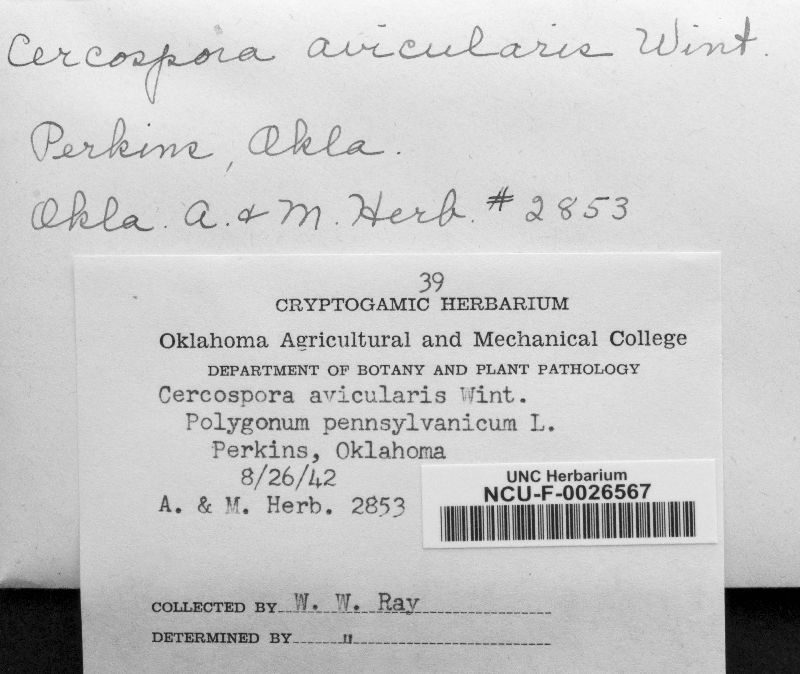 Cercospora avicularis Wint.
Perkins, Okla.
Okla. A. & M. Herb. # 2853
39
CRYPTOGAMIC HERBARIUM
Oklahoma Agricultural and Mechanical College
DEPARTMENT OF BOTANY AND PLANT PATHOLOGY
Cercospora avicularis Wint.
Polygonum pennsylvanicum L.
Perkins, Oklahoma
8/26/42
A. & M. Herb. 2853
UNC Herbarium
NCU-F-0026567
COLLECTED BY W. W. Ray
DETERMINED BY "